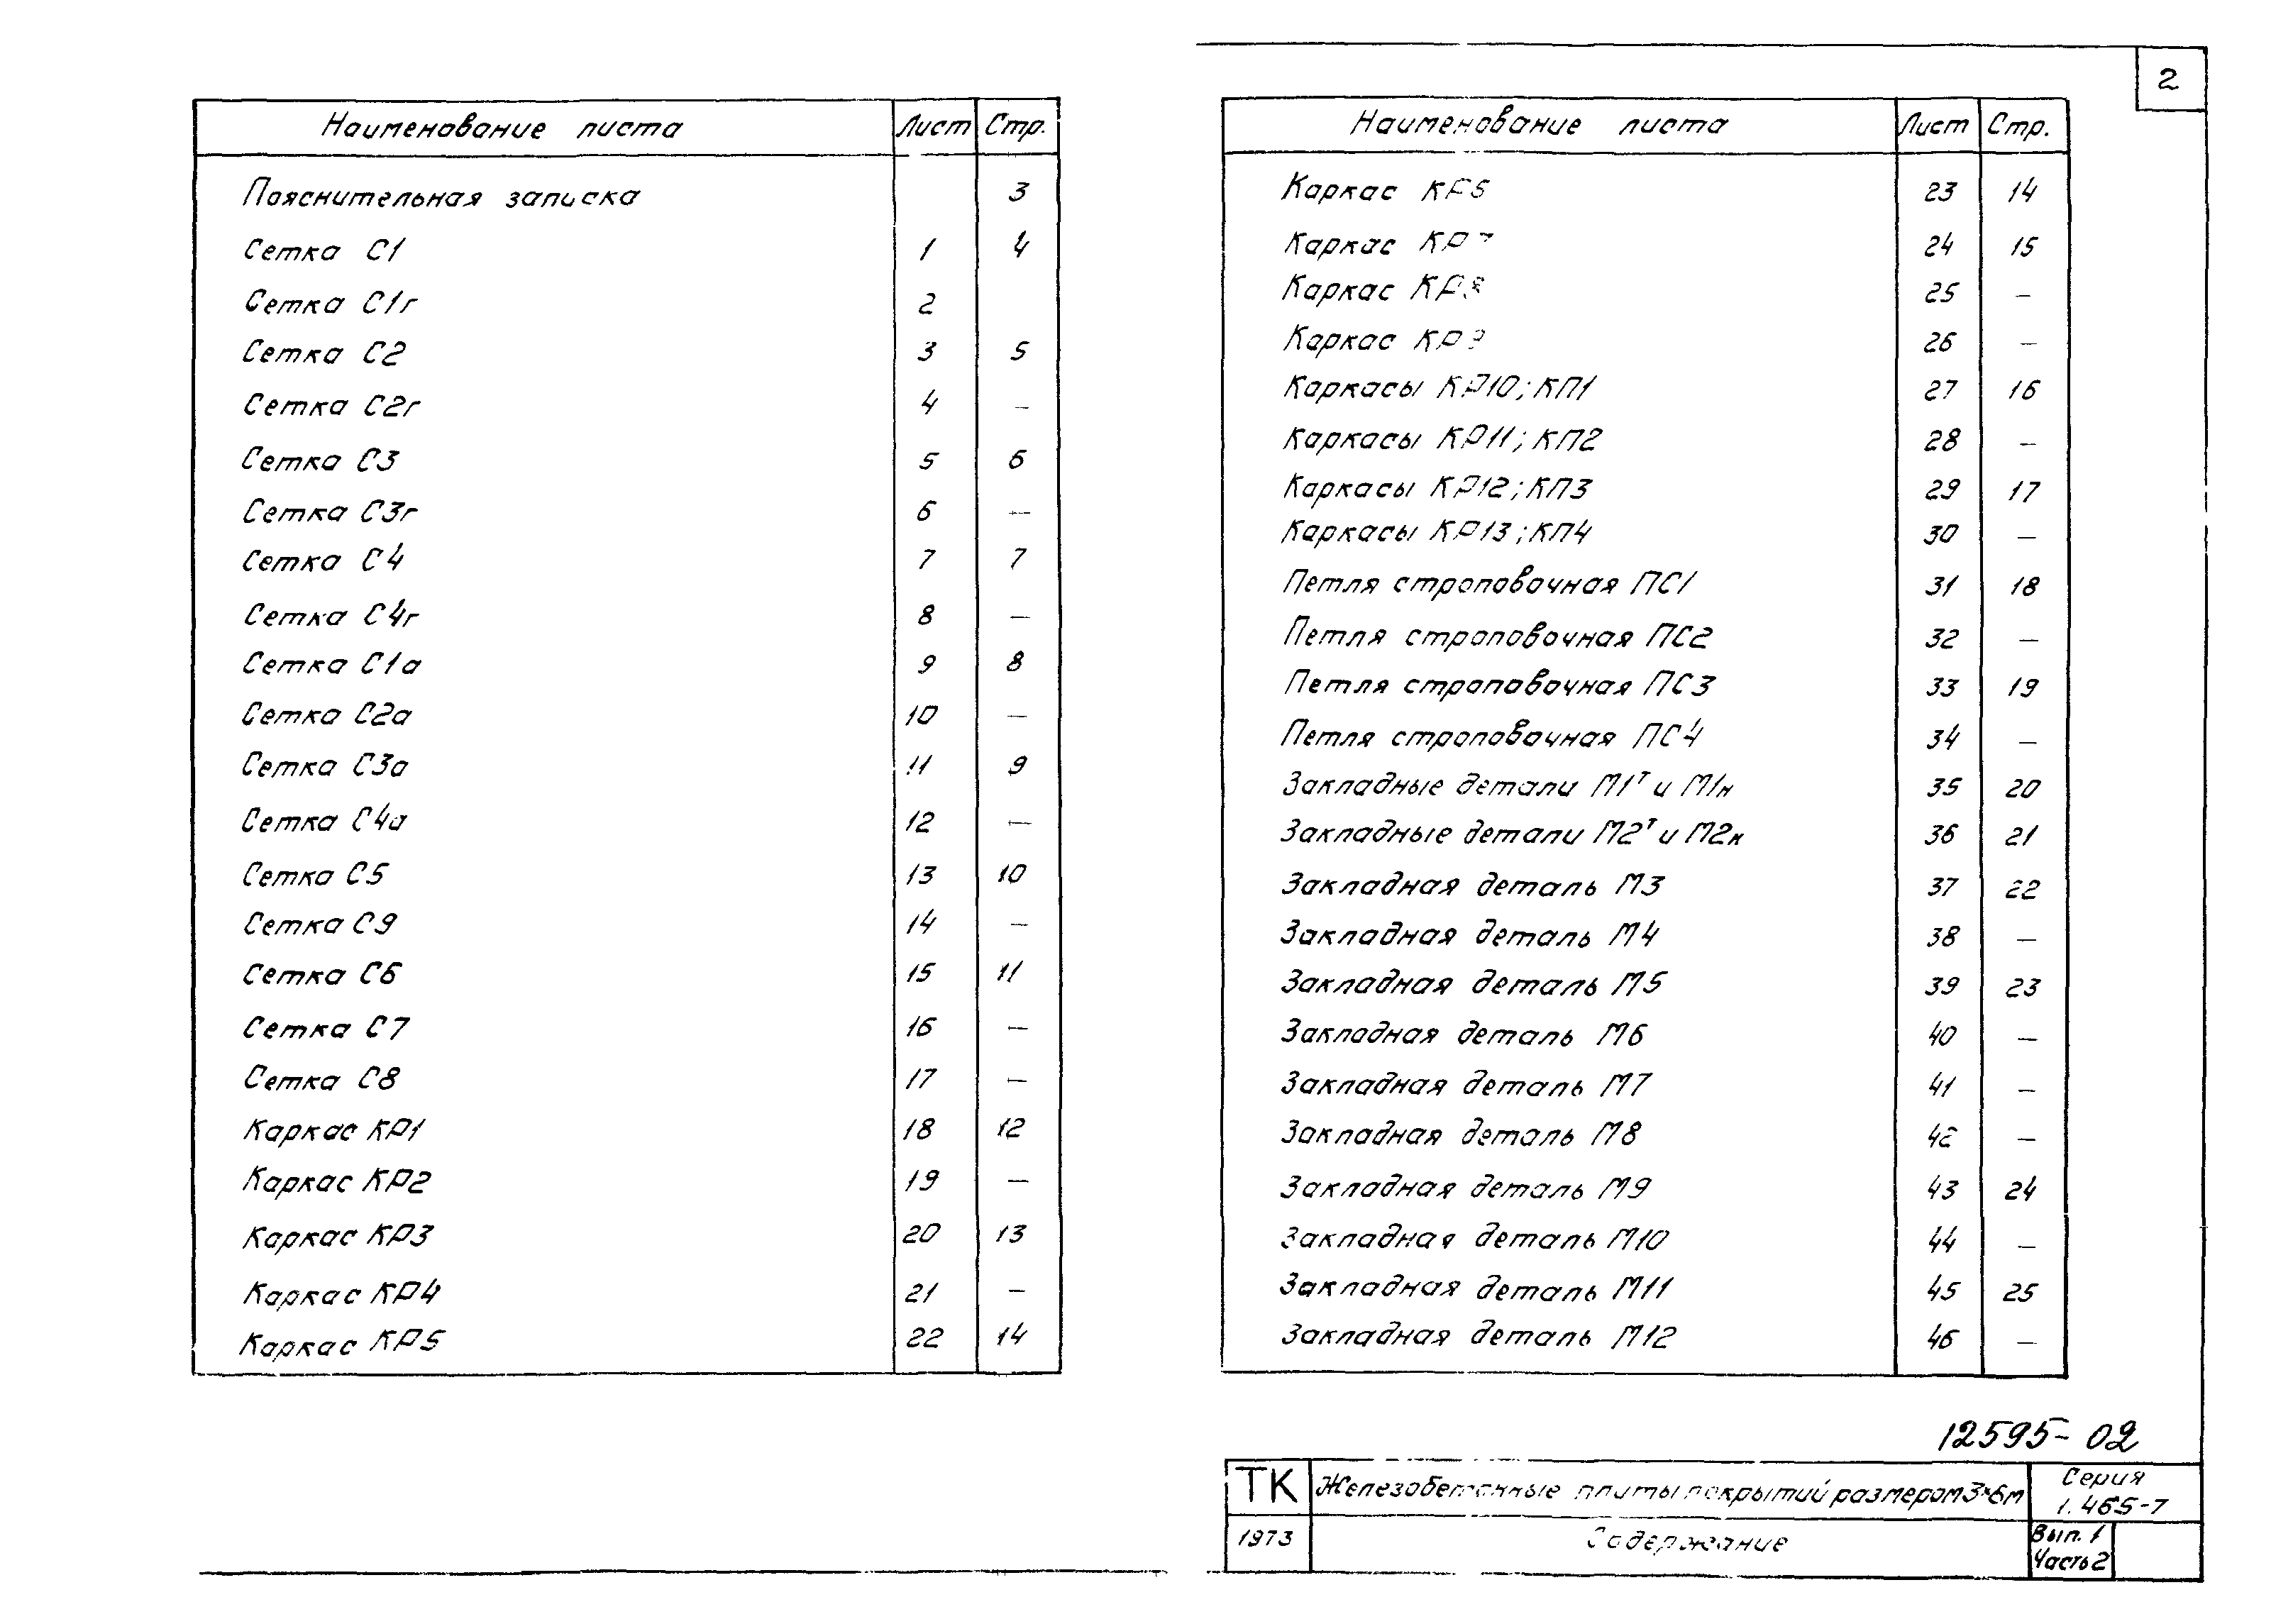 2
Наименование листа Лист Стр.
Пояснительная записка 3
Сетка С1 1 4
Сетка С1г 2
Сетка С2 3 5
Сетка С2г 4 —
Сетка С3 5 6
Сетка С3г 6 —
Сетка С4 7 7
Сетка С4г 8 —
Сетка С1а 9 8
Сетка С2а 10 —
Сетка С3а 11 9
Сетка С4а 12 —
Сетка С5 13 10
Сетка С9 14 —
Сетка С6 15 11
Сетка С7 16 —
Сетка С8 17 —
Каркас КР1 18 12
Каркас КР2 19 —
Каркас КР3 20 13
Каркас КР4 21 —
Каркас КР5 22 14
Наименование листа Лист Стр.
Каркас КР6 23 14
Каркас КР7 24 15
Каркас КР8 25 —
Каркас КР9 26 —
Каркасы КР10; КП1 27 16
Каркасы КР11; КП2 28 —
Каркасы КР12; КП3 29 17
Каркасы КР13; КП4 30 —
Петля строповочная ПС1 31 18
Петля строповочная ПС2 32 —
Петля строповочная ПС3 33 19
Петля строповочная ПС4 34 —
Закладные детали М1т и М1н 35 20
Закладные детали М2т и М2н 36 21
Закладная деталь М3 37 22
Закладная деталь М4 38 —
Закладная деталь М5 39 23
Закладная деталь М6 40 —
Закладная деталь М7 41 —
Закладная деталь М8 42 —
Закладная деталь М9 43 24
Закладная деталь М10 44 —
Закладная деталь М11 45 25
Закладная деталь М12 46 —
12595-02
ТК Железобетонные плиты покрытий размером 3×6м Серия
1.465-7
1973 Содержание Вып. 1
Часть 2